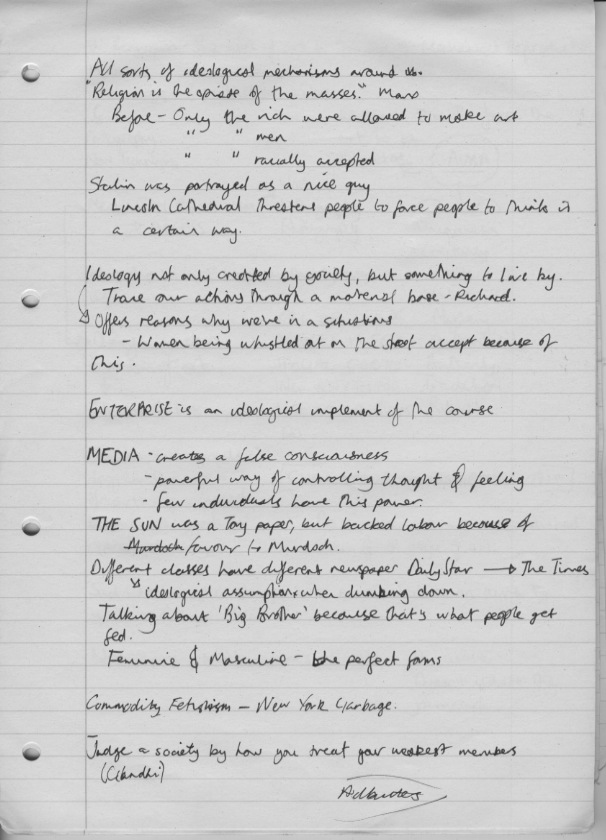 All sorts of ideological mechanisms around us.
"Religion is the opiate of the masses." Marx
Before - Only the rich were allowed to make art
" " men
" " racially accepted
Stalin was portrayed as a nice guy
Lincoln Cathedral threatens people to force people to think in
a certain way.
Ideology not only created by society, but something to live by.
Trace our actions through a material base - Richard.
Offers reasons why we're in a situations
- Women being whistled at on the street accept because of
this.
ENTERPRISE is an ideological implement of the course
MEDIA - creates a false consciousness
- powerful way of controlling thought & feeling
- few individuals have this power.
THE SUN was a Tory paper, but backed labour because of
Murdoch favour to Murdoch.
Different classes have different newspaper Daily Star → The Times
ideological assumptions when dumbing down.
Talking about 'Big Brother' because that's what people get
fed.
Feminine & Masculine - the perfect forms
Commodity Fetishism - New York Garbage.
Judge a society by how you treat your weakest members
(Ghandi)
Adbusters